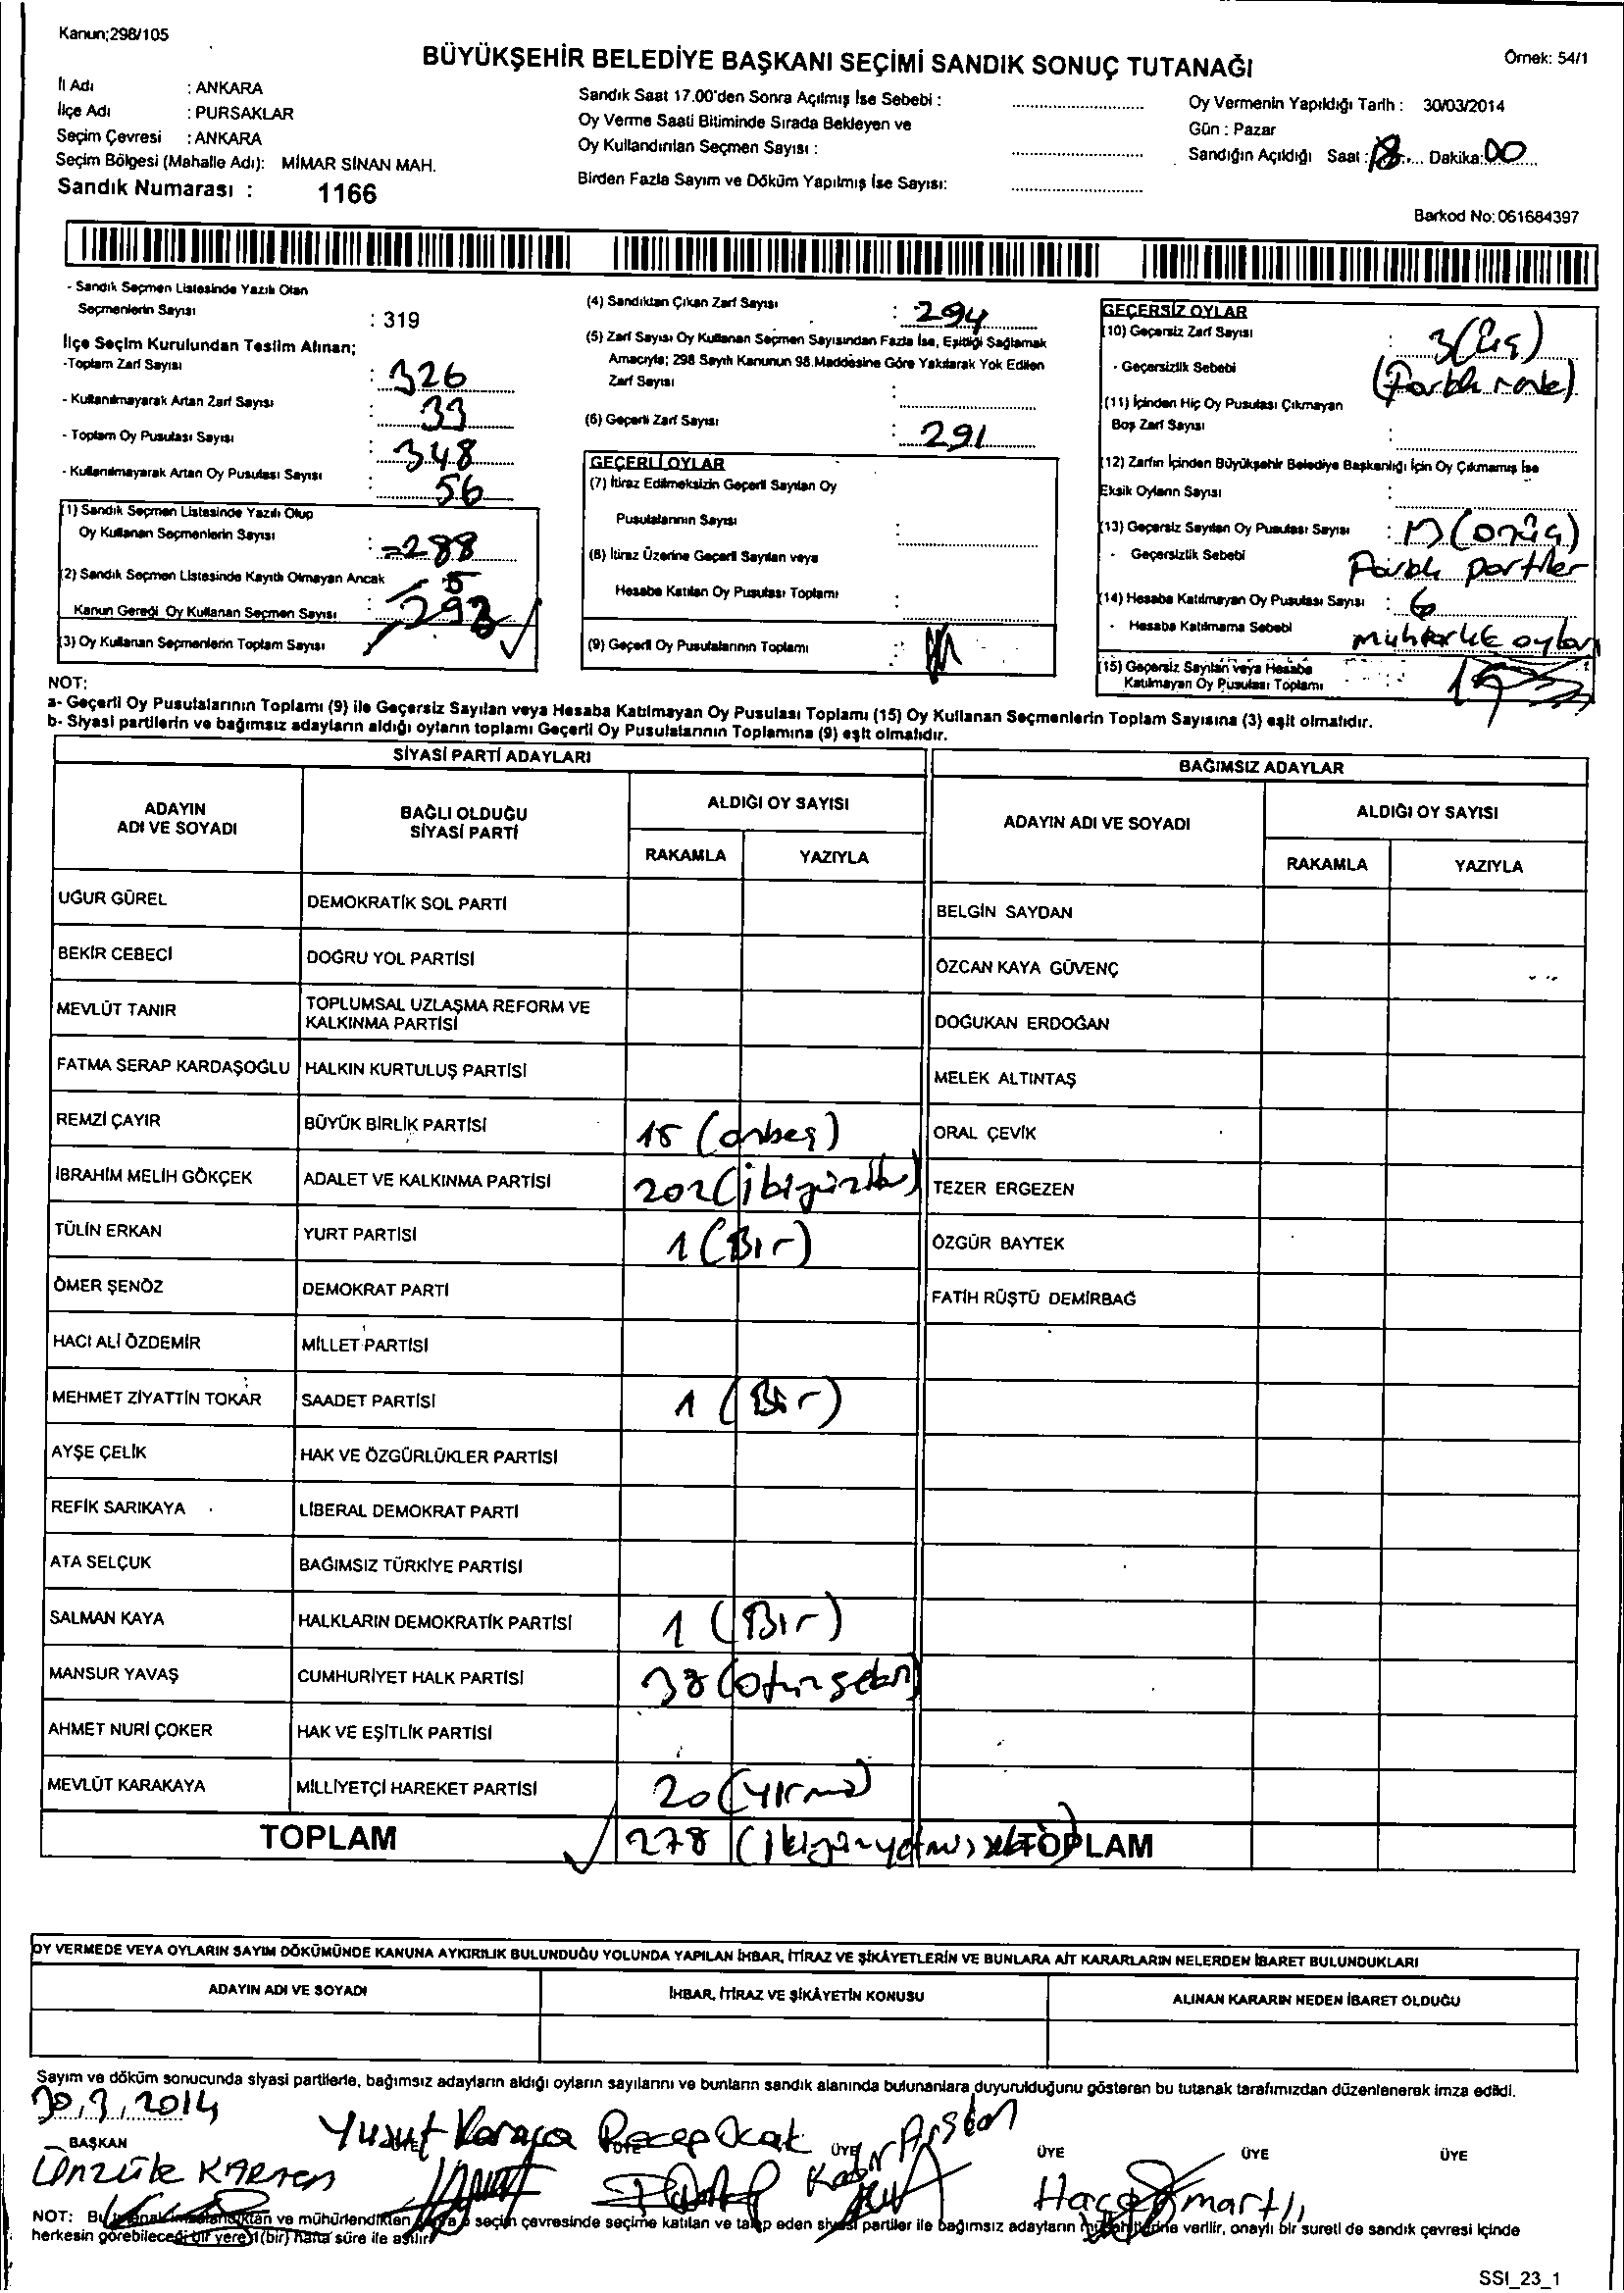 Kanun;298/105
BÜYÜKŞEHİR BELEDİYE BAŞKANI SEÇİMİ SANDIK SONUÇ TUTANAĞI
Örnek: 54/1
İl Adı : ANKARA
İlçe Adı : PURSAKLAR
Seçim Çevresi : ANKARA
Seçim Bölgesi (Mahalle Adı): MİMAR SİNAN MAH.
Sandık Numarası : 1166
Sandık Saat 17.00'den Sonra Açılmış İse Sebebi :
Oy Verme Saati Bitiminde Sırada Bekleyen ve
Oy Kullandırılan Seçmen Sayısı :
Birden Fazla Sayım ve Döküm Yapılmış İse Sayısı:
Oy Vermenin Yapıldığı Tarih : 30/03/2014
Gün : Pazar
Sandığın Açıldığı Saat : 18 Dakika: 00
Barkod No: 061684397
- Sandık Seçmen Listesinde Yazılı Olan
Seçmenlerin Sayısı : 319
İlçe Seçim Kurulundan Teslim Alınan;
-Toplam Zarf Sayısı : 326
- Kullanılmayarak Artan Zarf Sayısı : 33
- Toplam Oy Pusulası Sayısı : 348
- Kullanılmayarak Artan Oy Pusulası Sayısı : 56
(1) Sandık Seçmen Listesinde Yazılı Olup
Oy Kullanan Seçmenlerin Sayısı : =288
(2) Sandık Seçmen Listesinde Kayıtlı Olmayan Ancak
Kanun Gereği Oy Kullanan Seçmen Sayısı : 5
(3) Oy Kullanan Seçmenlerin Toplam Sayısı
(4) Sandıktan Çıkan Zarf Sayısı : 294
(5) Zarf Sayısı Oy Kullanan Seçmen Sayısından Fazla İse, Eşitliği Sağlamak
Amacıyla; 298 Sayılı Kanunun 98.Maddesine Göre Yakılarak Yok Edilen
Zarf Sayısı :
(6) Geçerli Zarf Sayısı : 291
GEÇERLİ OYLAR
(7) İtiraz Edilmeksizin Geçerli Sayılan Oy
Pusulalarının Sayısı :
(8) İtiraz Üzerine Geçerli Sayılan veya
Hesaba Katılan Oy Pusulası Toplamı :
(9) Geçerli Oy Pusulalarının Toplamı :
GEÇERSİZ OYLAR
(10) Geçersiz Zarf Sayısı : 3 (Üç)
- Geçersizlik Sebebi (Farklı renk)
(11) İçinden Hiç Oy Pusulası Çıkmayan
Boş Zarf Sayısı :
(12) Zarfın İçinden Büyükşehir Belediye Başkanlığı İçin Oy Çıkmamış İse
Eksik Oyların Sayısı :
(13) Geçersiz Sayılan Oy Pusulası Sayısı : 13 (onüç)
- Geçersizlik Sebebi Farklı partiler
(14) Hesaba Katılmayan Oy Pusulası Sayısı : 6
- Hesaba Katılmama Sebebi muhtarlık oyları
(15) Geçersiz Sayılan veya Hesaba
Katılmayan Oy Pusulası Toplamı :
NOT:
a- Geçerli Oy Pusulalarının Toplamı (9) ile Geçersiz Sayılan veya Hesaba Katılmayan Oy Pusulası Toplamı (15) Oy Kullanan Seçmenlerin Toplam Sayısına (3) eşit olmalıdır.
b- Siyasi partilerin ve bağımsız adayların aldığı oyların toplamı Geçerli Oy Pusulalarının Toplamına (9) eşit olmalıdır.
SİYASİ PARTİ ADAYLARI
BAĞIMSIZ ADAYLAR
ADAYIN ADI VE SOYADI
BAĞLI OLDUĞU SİYASİ PARTİ
ALDIĞI OY SAYISI
RAKAMLA YAZIYLA
ADAYIN ADI VE SOYADI
ALDIĞI OY SAYISI
RAKAMLA YAZIYLA
UĞUR GÜREL DEMOKRATİK SOL PARTİ
BELGİN SAYDAN
BEKİR CEBECİ DOĞRU YOL PARTİSİ
ÖZCAN KAYA GÜVENÇ
MEVLÜT TANIR TOPLUMSAL UZLAŞMA REFORM VE KALKINMA PARTİSİ
DOĞUKAN ERDOĞAN
FATMA SERAP KARDAŞOĞLU HALKIN KURTULUŞ PARTİSİ
MELEK ALTINTAŞ
REMZİ ÇAYIR BÜYÜK BİRLİK PARTİSİ 15 (onbeş)
ORAL ÇEVİK
İBRAHİM MELİH GÖKÇEK ADALET VE KALKINMA PARTİSİ 202 (ikiyüziki)
TEZER ERGEZEN
TÜLİN ERKAN YURT PARTİSİ 1 (Bir)
ÖZGÜR BAYTEK
ÖMER ŞENÖZ DEMOKRAT PARTİ
FATİH RÜŞTÜ DEMİRBAĞ
HACI ALİ ÖZDEMİR MİLLET PARTİSİ
MEHMET ZİYATTİN TOKAR SAADET PARTİSİ 1 (Bir)
AYŞE ÇELİK HAK VE ÖZGÜRLÜKLER PARTİSİ
REFİK SARIKAYA LİBERAL DEMOKRAT PARTİ
ATA SELÇUK BAĞIMSIZ TÜRKİYE PARTİSİ
SALMAN KAYA HALKLARIN DEMOKRATİK PARTİSİ 1 (Bir)
MANSUR YAVAŞ CUMHURİYET HALK PARTİSİ 38 (otuzsekiz)
AHMET NURİ ÇOKER HAK VE EŞİTLİK PARTİSİ
MEVLÜT KARAKAYA MİLLİYETÇİ HAREKET PARTİSİ 20 (yirmi)
TOPLAM 278 (ikiyüzyetmişsekiz) TOPLAM
OY VERMEDE VEYA OYLARIN SAYIM DÖKÜMÜNDE KANUNA AYKIRILIK BULUNDUĞU YOLUNDA YAPILAN İHBAR, İTİRAZ VE ŞİKÂYETLERİN VE BUNLARA AİT KARARLARIN NELERDEN İBARET BULUNDUKLARI
ADAYIN ADI VE SOYADI
İHBAR, İTİRAZ VE ŞİKÂYETİN KONUSU
ALINAN KARARIN NEDEN İBARET OLDUĞU
Sayım ve döküm sonucunda siyasi partilerle, bağımsız adayların aldığı oyların sayılarını ve bunların sandık alanında bulunanlara duyurulduğunu gösteren bu tutanak tarafımızdan düzenlenerek imza edildi.
30.3.2014
Yusuf Karaca Recep Ocak Kadir Arslan
BAŞKAN ÜYE ÜYE ÜYE ÜYE ÜYE ÜYE
NOT: Bu ve mühürlendikten seçim çevresinde seçime katılan ve talep eden siyasi partiler ile bağımsız adayların müşahitlerine verilir, onaylı bir sureti de sandık çevresi içinde
herkesin görebileceği bir yere 1 (bir) hafta süre ile asılır.
SSI_23_1